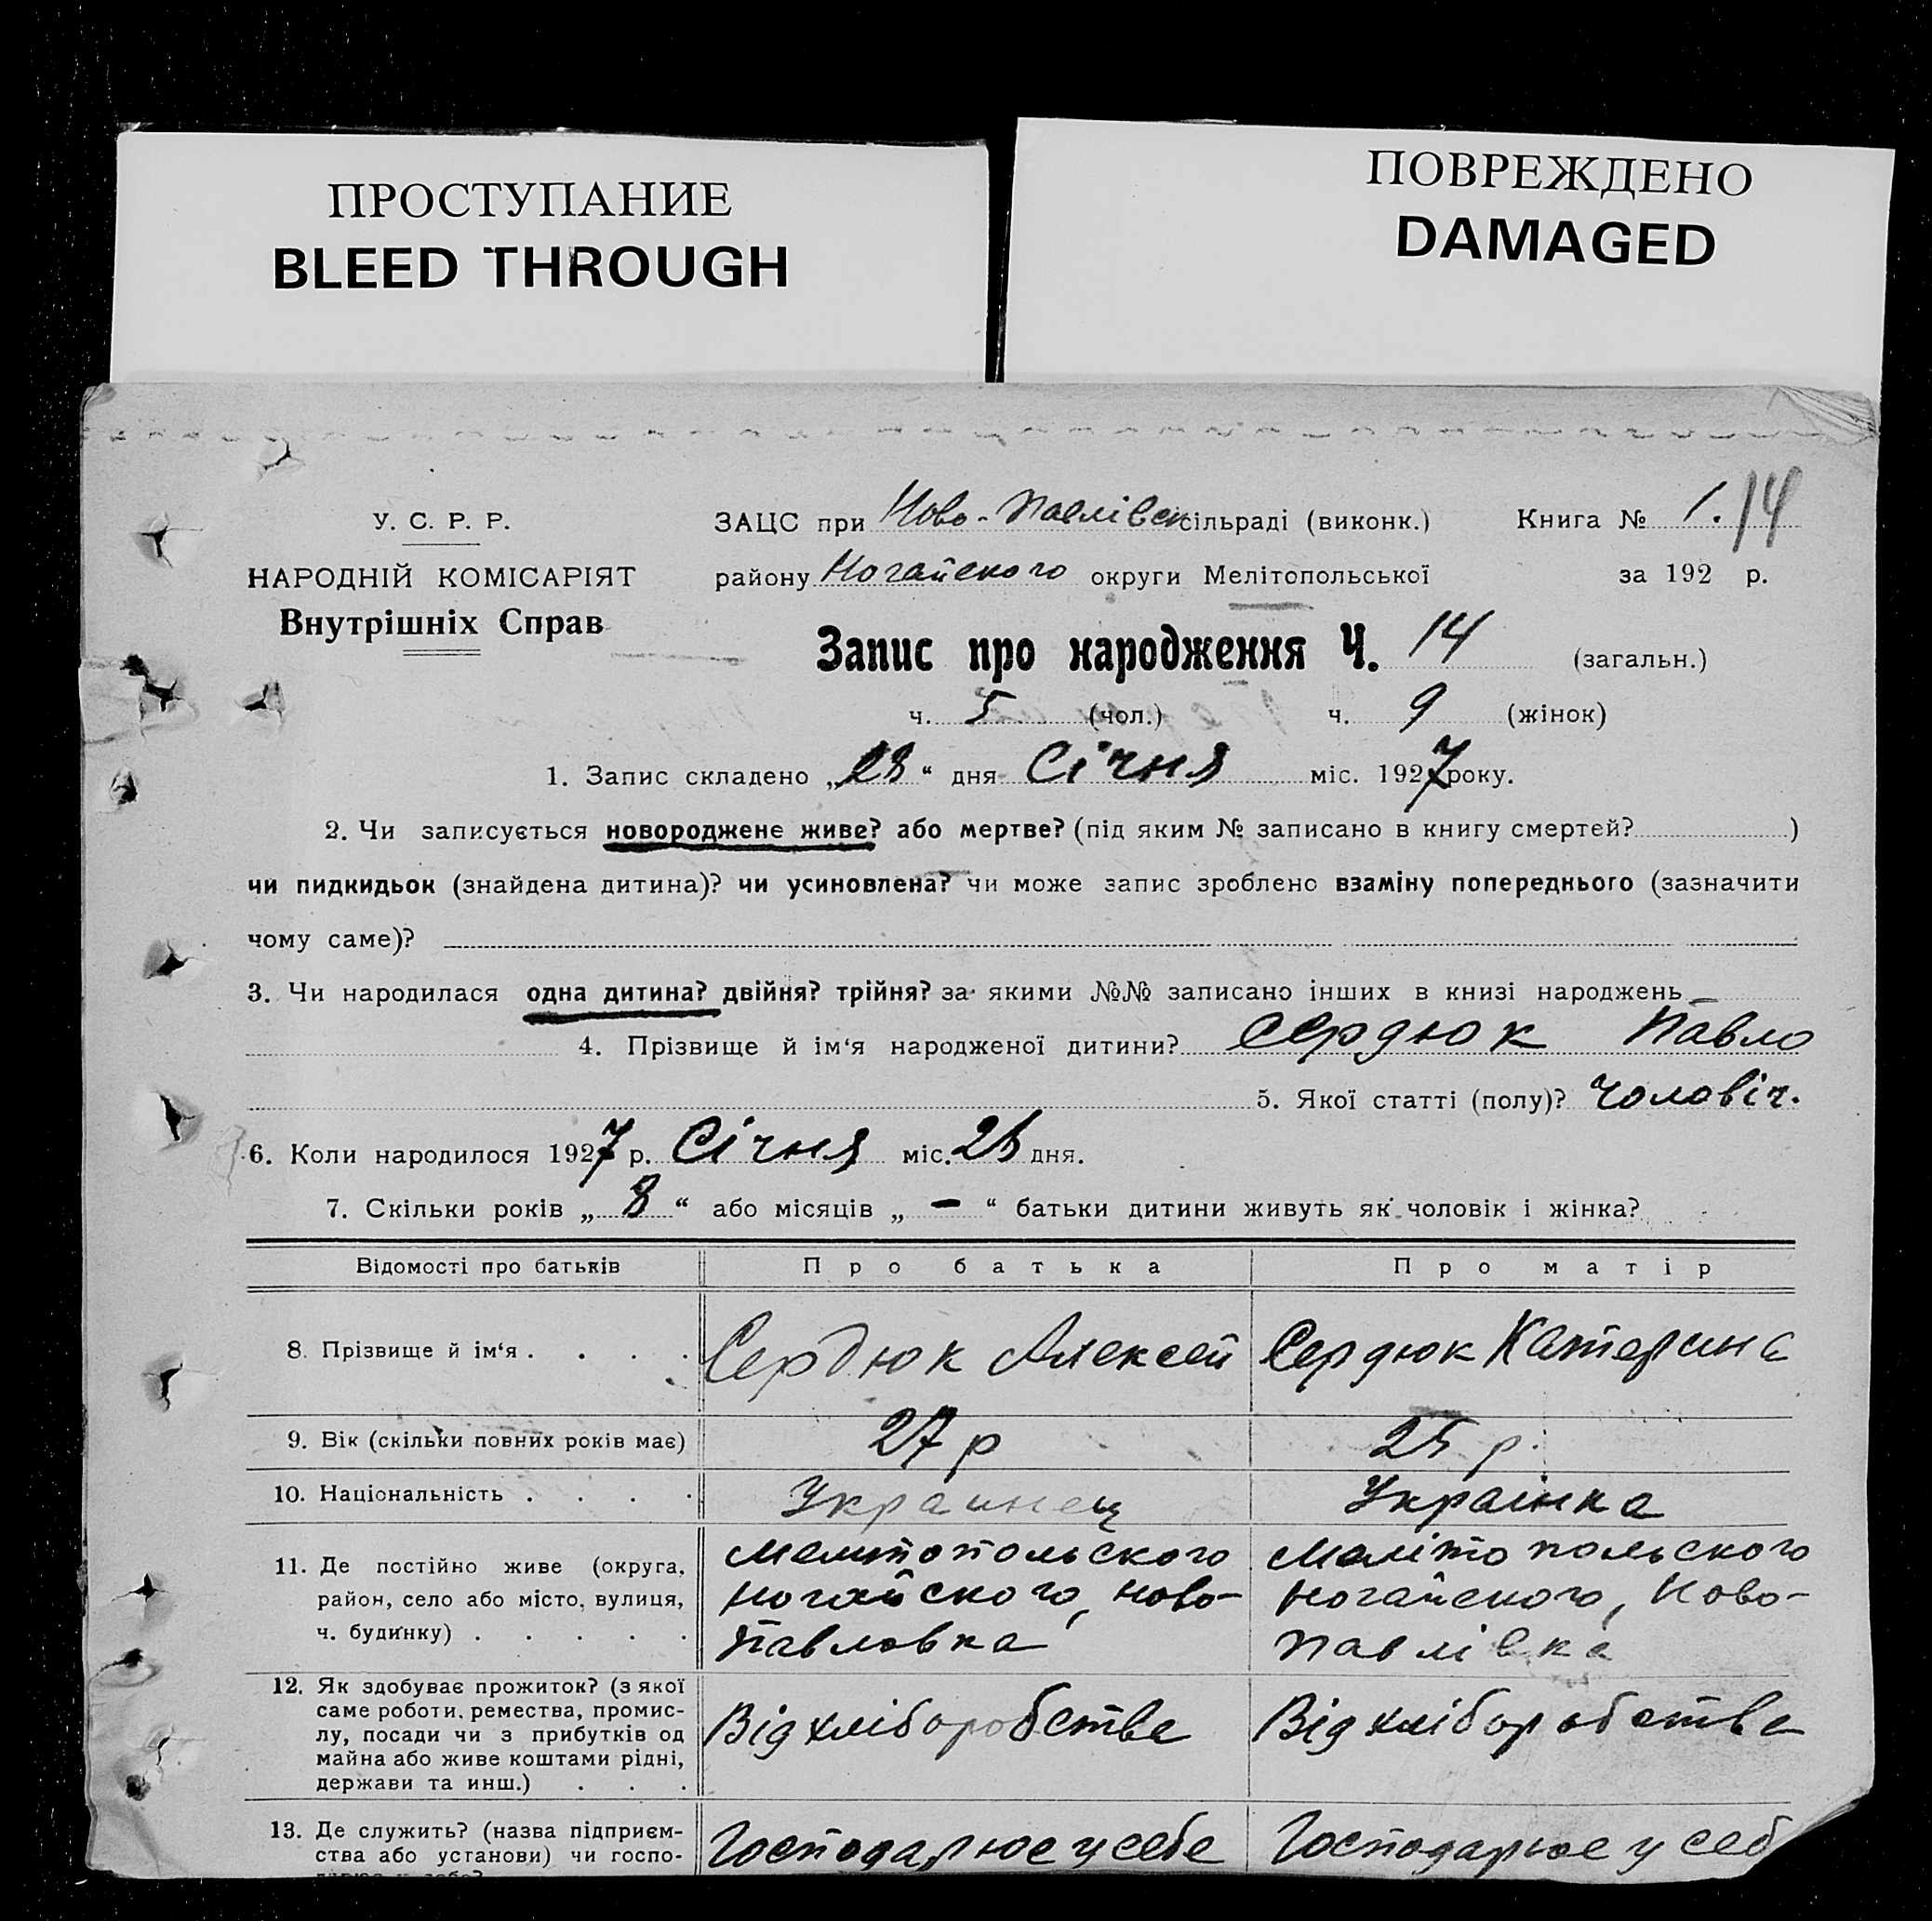 ПРОСТУПАНИЕ
BLEED THROUGH
ПОВРЕЖДЕНО
DAMAGED
У. С. Р. Р.
НАРОДНІЙ КОМІСАРІЯТ
Внутрішніх Справ
ЗАЦС при Ново-Павлівск сільраді (виконк.) Книга № 1. 14
району Ногайского округи Мелітопольської за 192 р.
Запис про народження Ч. 14 (загальн.)
ч. 5 (чол.) ч. 9 (жінок)
1. Запис складено „28“ дня Січня міс. 1927 року.
2. Чи записується новороджене живе? або мертве? (під яким № записано в книгу смертей? )
чи пидкидьок (знайдена дитина)? чи усиновлена? чи може запис зроблено взаміну попереднього (зазначити
чому саме)?
3. Чи народилася одна дитина? двійня? трійня? за якими №№ записано інших в книзі народжень —
4. Прізвище й ім‘я народженої дитини? Сердюк Павло
5. Якої статті (полу)? Чоловіч.
6. Коли народилося 1927 р. Січня міс. дня.
7. Скільки років „8“ або місяців „—“ батьки дитини живуть як чоловік і жінка?
Відомості про батьків Про батька Про матір
8. Прізвище й ім‘я . . . . Сердюк Алексей Сердюк Катерина
9. Вік (скільки повних років має) 27 р 25 р.
10. Національність . . . . Украинец Украінка
11. Де постійно живе (округа, Мелитопольского Мелітопольского
район, село або місто, вулиця, Ногайского, Ново- Ногайского, Ново-
ч. будинку) . . . . . Павловка Павлівка
12. Як здобуває прожиток? (з якої
саме роботи, ремества, промис- Від хліборобства Від хліборобства
лу, посади чи з прибутків од
майна або живе коштами рідні,
держави та инш.) . . .
13. Де служить? (назва підприєм- Господарює у себе Господарює у себ
ства або установи) чи госпо-